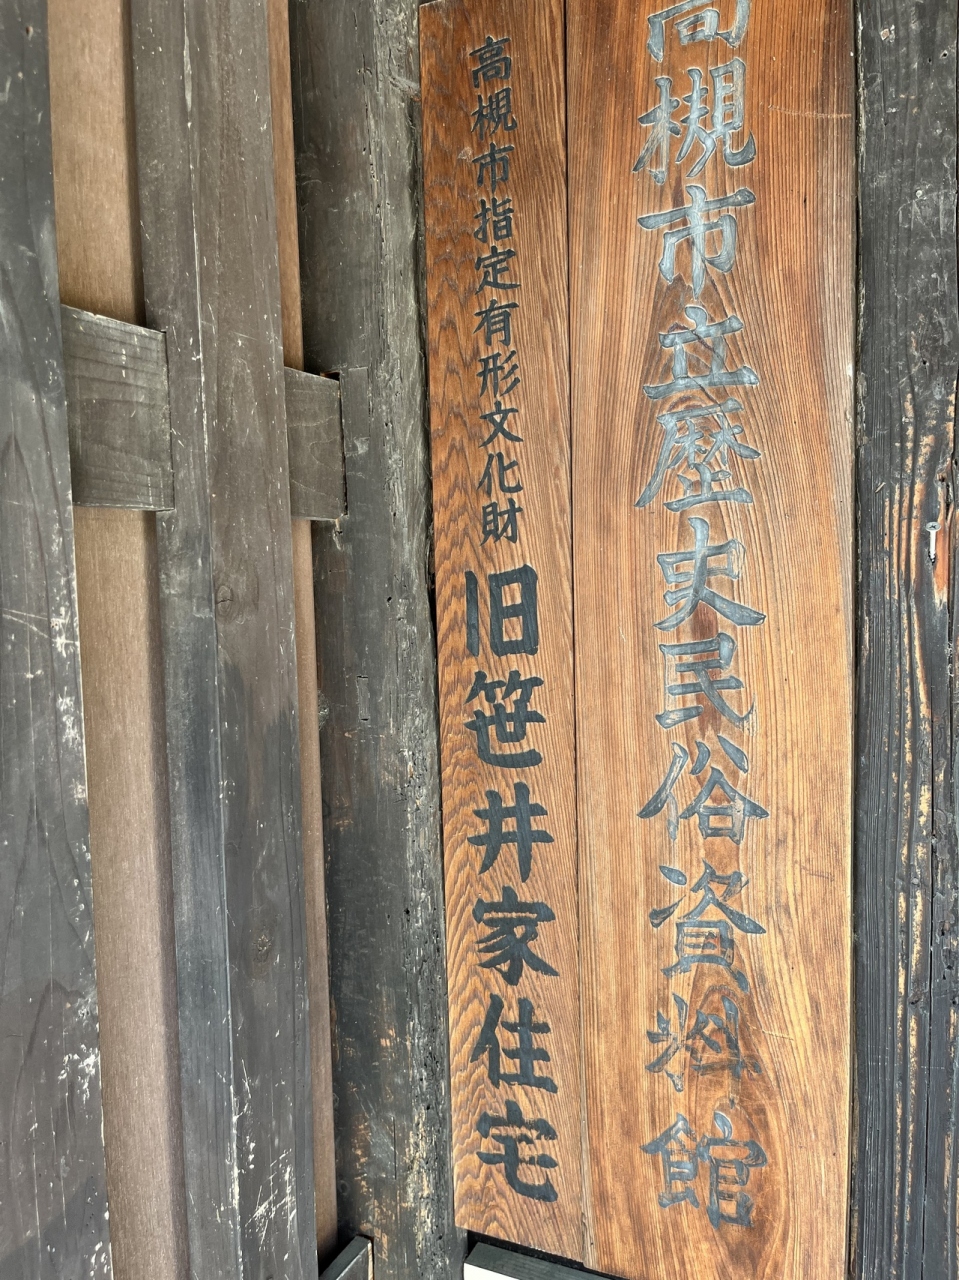 高槻市立歴史民俗資料館
高槻市指定有形文化財 旧笹井家住宅